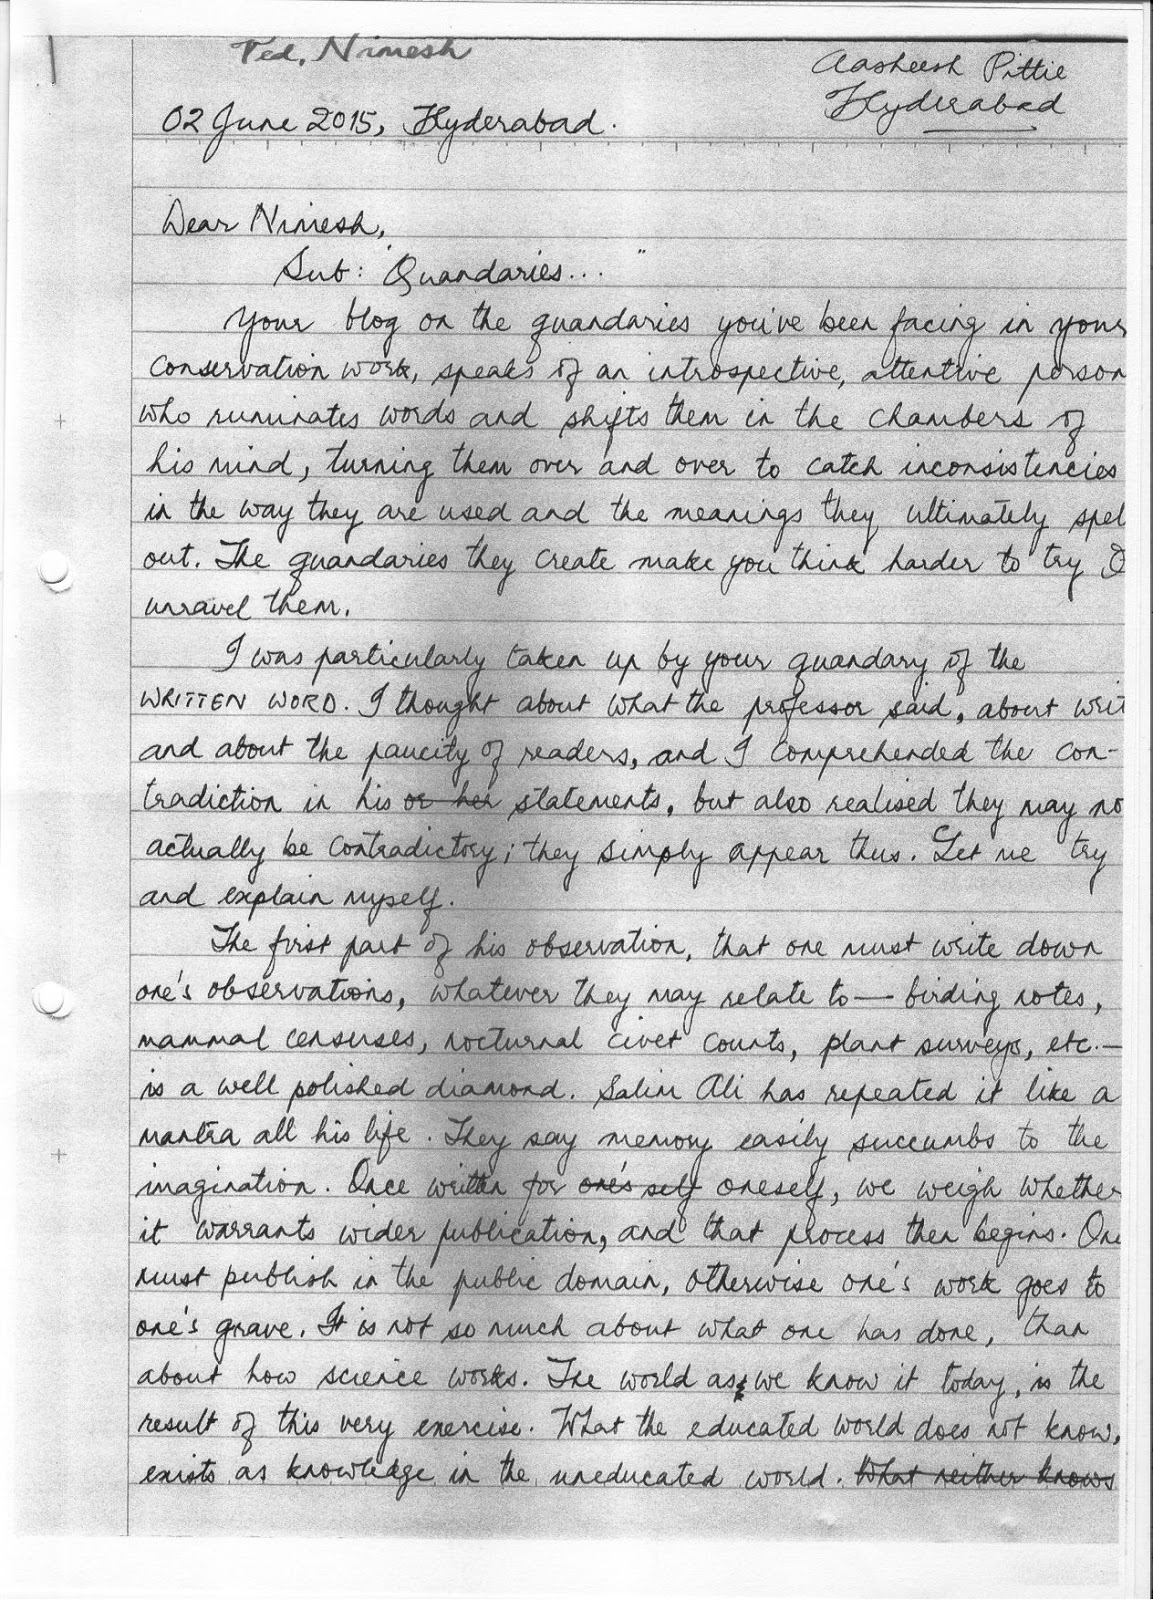 Ted, Nimesh
Aasheesh Pittie
Hyderabad
02 June 2015, Hyderabad.
Dear Nimesh,
Sub: "Quandaries... "
Your blog on the quandaries you've been facing in your
conservation work, speaks of an introspective, attentive person
who ruminates words and shifts them in the chambers of
his mind, turning them over and over to catch inconsistencies
in the way they are used and the meanings they ultimately spel
out. The quandaries they create make you think harder to try
unravel them.
I was particularly taken up by your quandary of the
WRITTEN WORD. I thought about what the professor said, about writ
and about the paucity of readers, and I comprehended the con-
tradiction in his or her statements, but also realised they may no
actually be contradictory; they simply appear thus. Let me try
and explain myself.
The first part of his observation, that one must write down
one's observations, whatever they may relate to — birding notes,
mammal censuses, nocturnal civet counts, plant surveys, etc. —
is a well polished diamond. Salim Ali has repeated it like a
mantra all his life. They say memory easily succumbs to the
imagination. Once written for one's self oneself, we weigh whether
it warrants wider publication, and that process then begins. One
must publish in the public domain, otherwise one's work goes to
one's grave. It is not so much about what one has done, than
about how science works. The world as we know it today, is the
result of this very exercise. What the educated world does not know,
exists as knowledge in the uneducated world. What neither knows